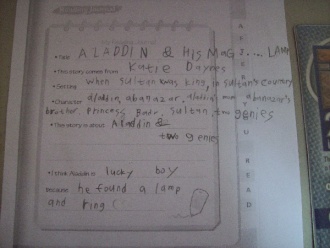 Reading Journal
• Title ALADDIN & HIS MAGI.... LAMP
• This story comes from Katie Daynes
• Setting When sultan was king, in sultan's country
• Character aladdin, abanazar, aladdin mom abanazar's
brother, princess Badr, sultan, two genies
• The story is about Aladdin &
two genies
• I think Aladdin is lucky boy
because he found a lamp
and ring (
AFTER YOU READ